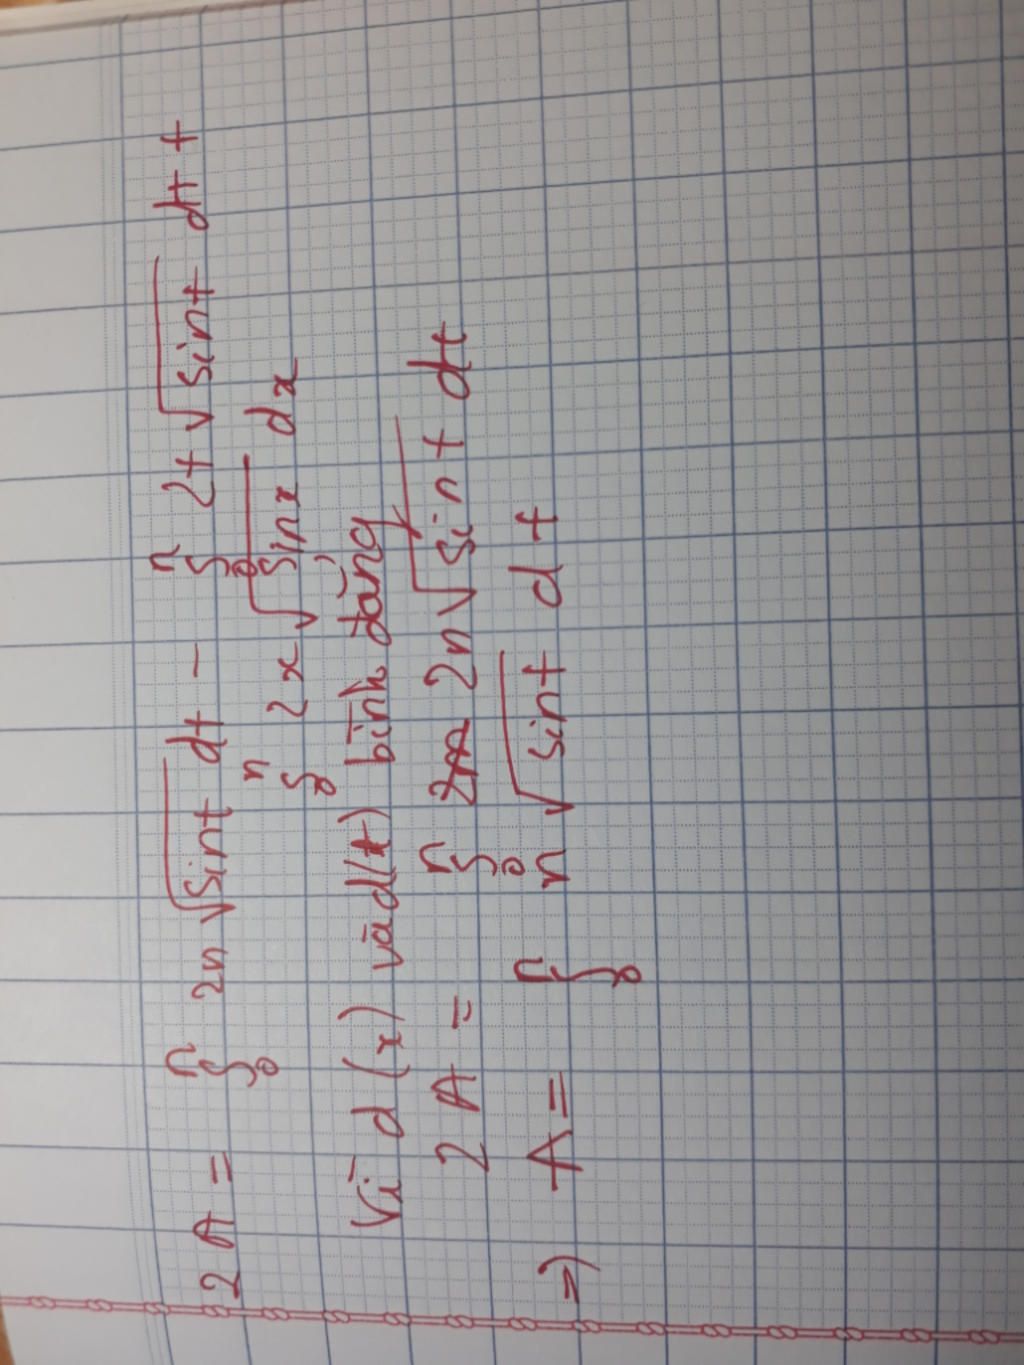 2A = ∫₀ⁿ 2n√sint dt - ∫₀ⁿ 2t√sint dt +
∫₀ⁿ 2x√sinx dx
Vì d(x) và d(t) bình đẳng
2A = ∫₀ⁿ 2n√sint dt
=) A = ∫₀ⁿ n√sint dt